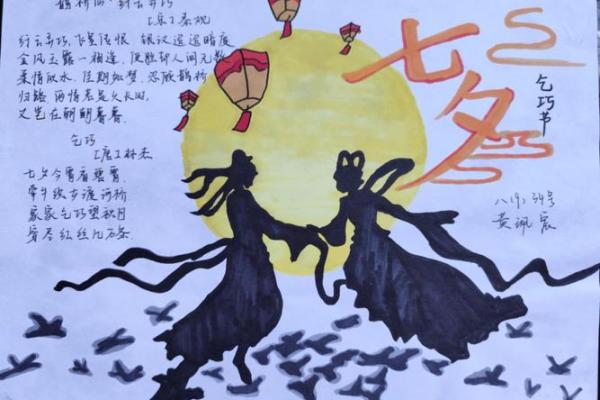 鹊桥仙·纤云弄巧
[宋]秦观
纤云弄巧，飞星传恨，银汉迢迢暗度
金风玉露一相逢，便胜却人间无数
柔情似水，佳期如梦，忍顾鹊桥
归路，两情若是久长时，
又岂在朝朝暮暮。
乞巧
[唐]林杰
七夕今宵看碧霄
牵牛织女渡河桥
家家乞巧望秋月
穿尽红丝几万条
七夕
乞巧节
八(9)34号
黄珮